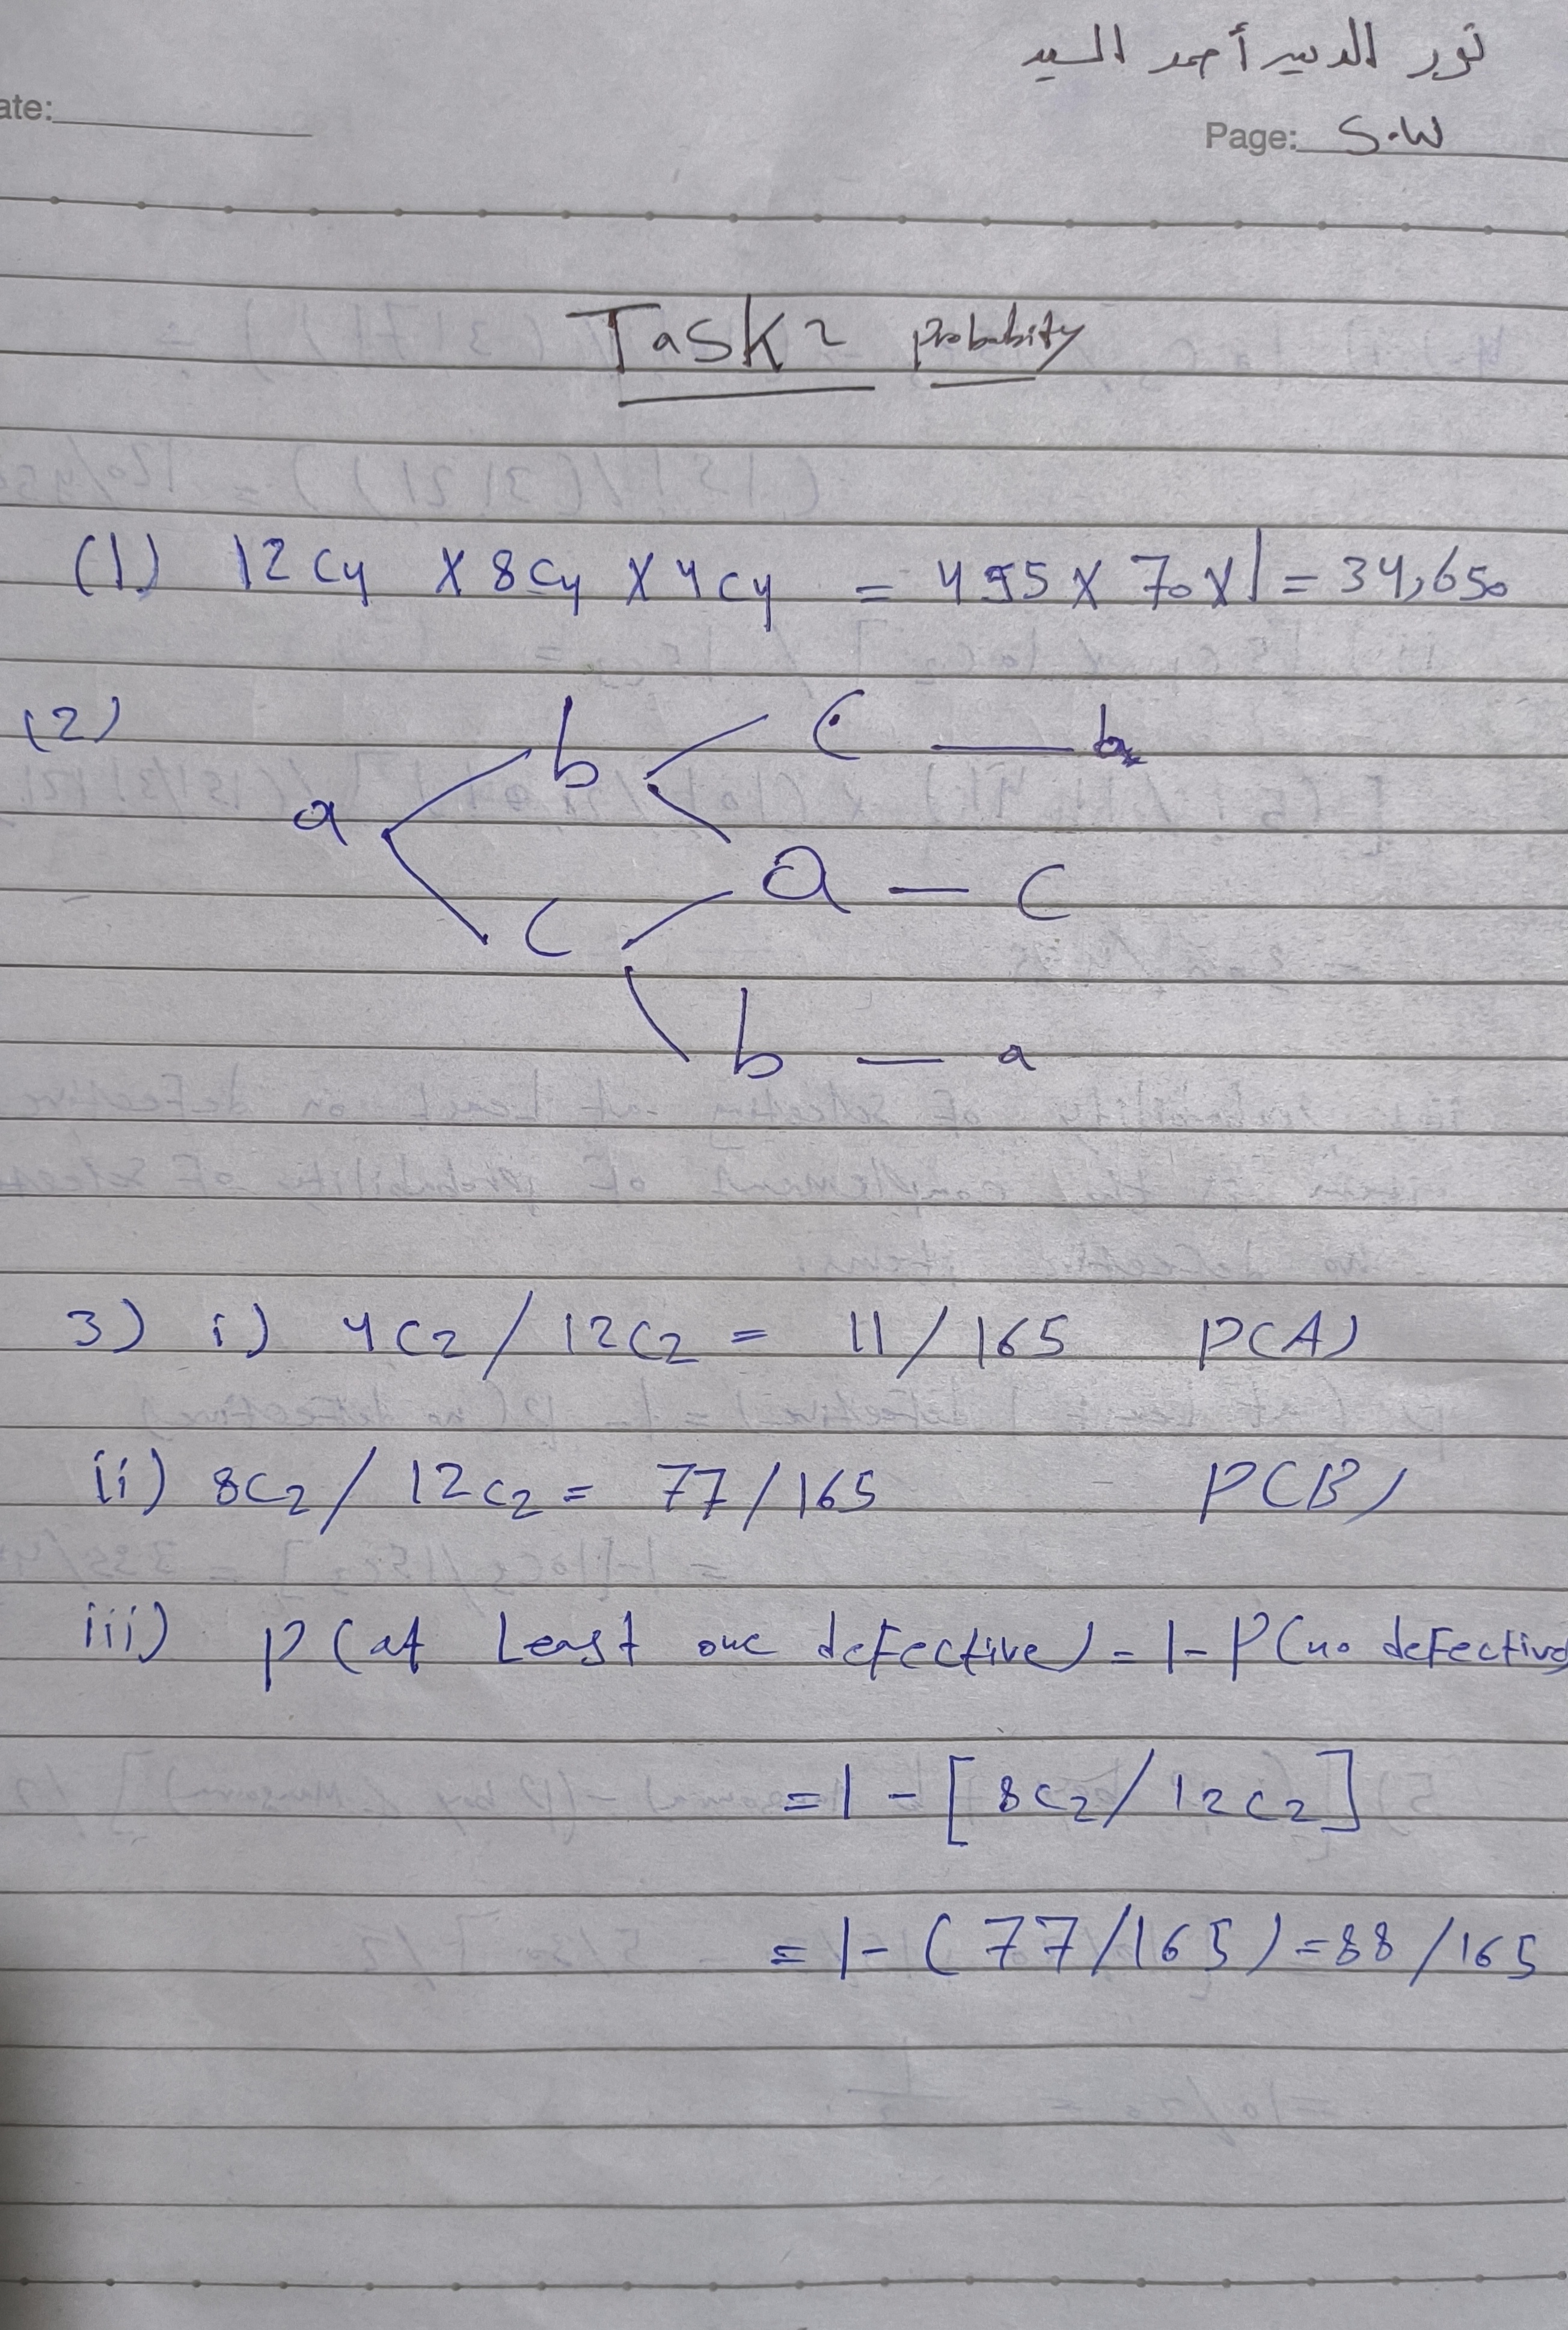 نور الدين أحمد السيد
ate:
Page: S.W
Task 2 probabity
(1) 12C4 X 8C4 X 4C4 = 495 X 70 X 1 = 34,650
(2)
b C b
a
a C
C
b a
3) i) 4C2 / 12C2 = 11/165 P(A)
ii) 8C2 / 12C2 = 77/165 P(B)
iii) P(at Least one deFective) = 1-P(no deFective
=1-[8C2/12C2]
=1-(77/165)=88/165